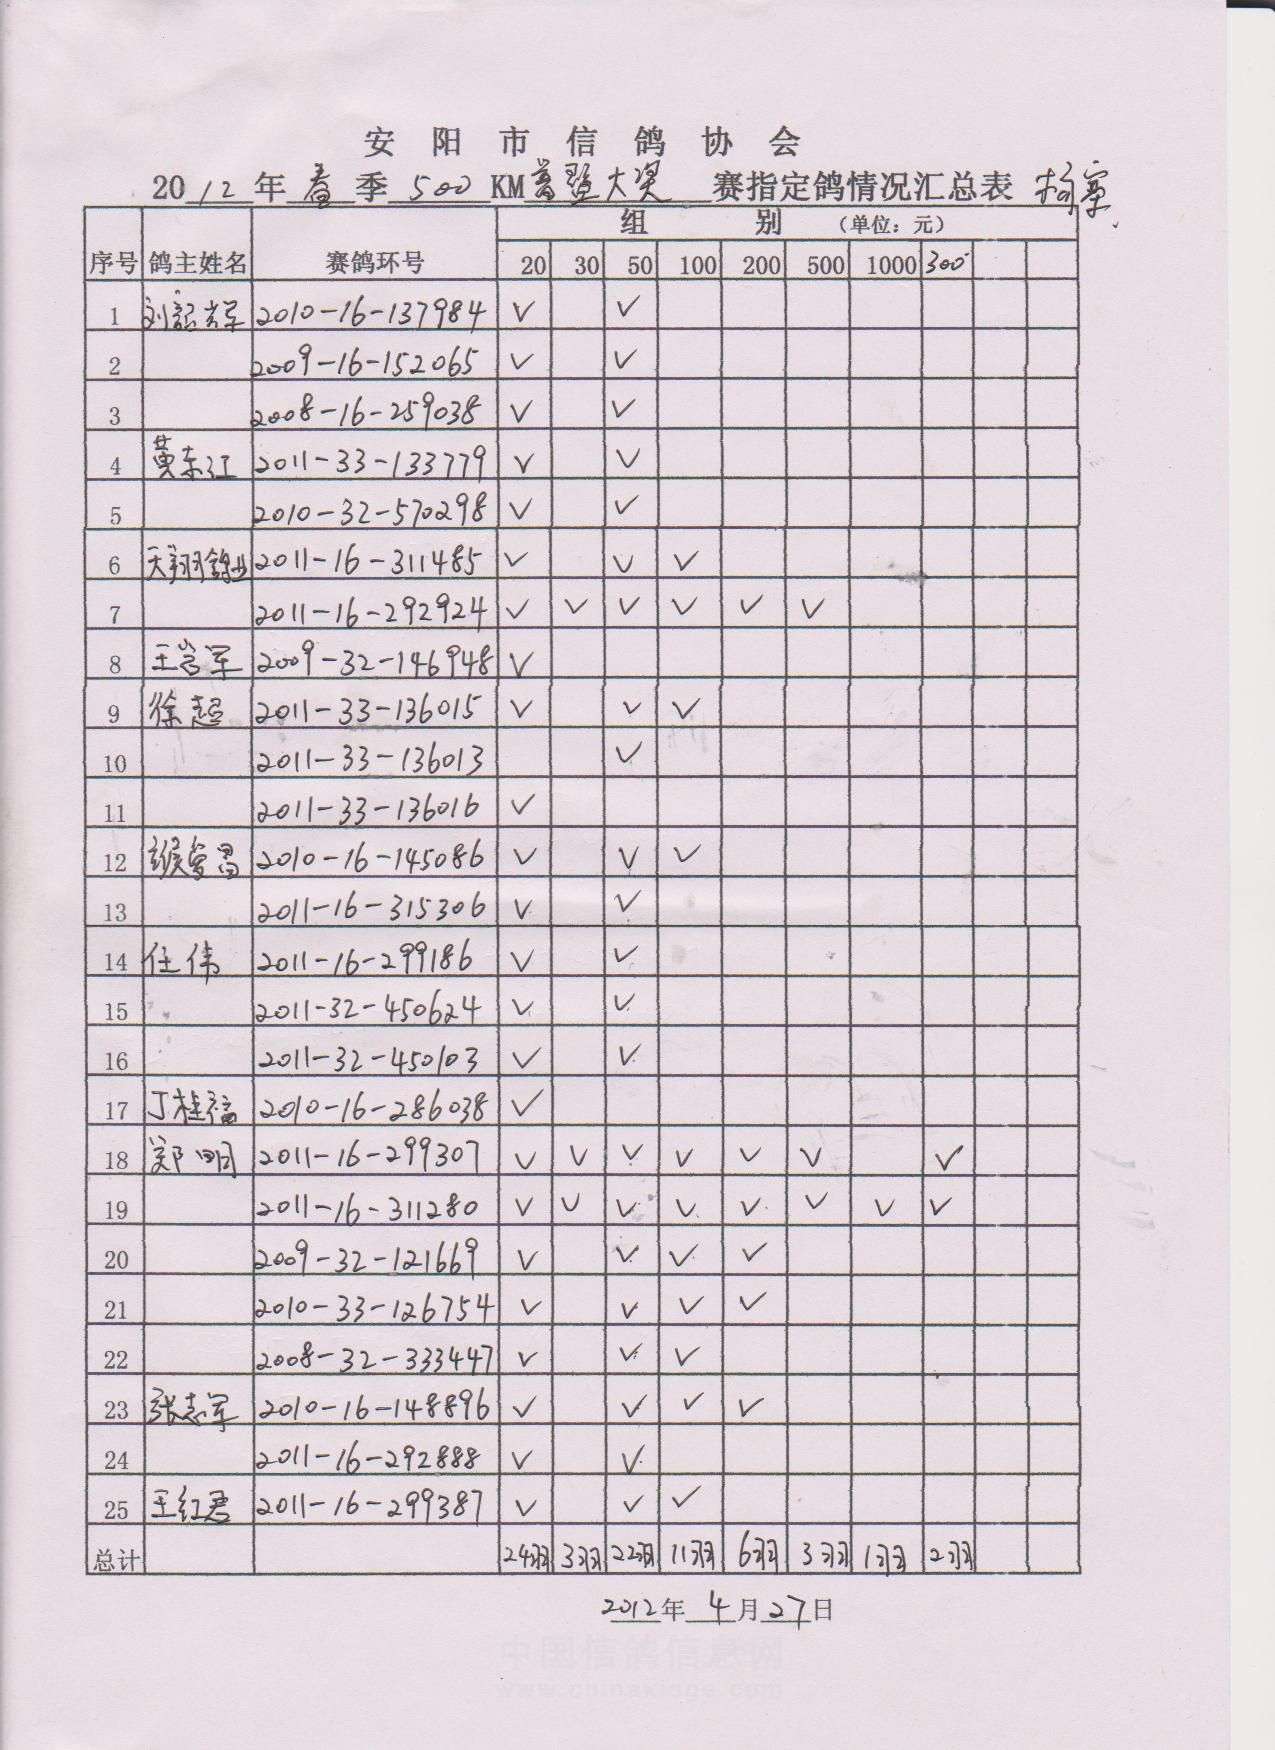 安阳市信鸽协会
2012年春季500KM 大奖 赛指定鸽情况汇总表
组别 (单位：元)
序号 鸽主姓名 赛鸽环号 20 30 50 100 200 500 1000 300
1 2010-16-137984 ✓ ✓
2 2009-16-152065 ✓ ✓
3 2008-16-259038 ✓ ✓
4 黄东江 2011-33-133779 ✓ ✓
5 2010-32-570298 ✓ ✓
6 天翔鸽业 2011-16-311485 ✓ ✓ ✓
7 2011-16-292924 ✓ ✓ ✓ ✓ ✓ ✓
8 2009-32-146948 ✓
9 徐超 2011-33-136015 ✓ ✓ ✓
10 2011-33-136013 ✓
11 2011-33-136016 ✓
12 2010-16-145086 ✓ ✓ ✓
13 2011-16-315306 ✓ ✓
14 任伟 2011-16-299186 ✓ ✓
15 2011-32-450624 ✓ ✓
16 2011-32-450103 ✓ ✓
17 丁桂福 2010-16-286038 ✓
18 郑明 2011-16-299307 ✓ ✓ ✓ ✓ ✓ ✓ ✓
19 2011-16-311280 ✓ ✓ ✓ ✓ ✓ ✓ ✓ ✓
20 2009-32-121669 ✓ ✓ ✓ ✓
21 2010-33-126754 ✓ ✓ ✓ ✓
22 2008-32-333447 ✓ ✓ ✓
23 张志军 2010-16-148896 ✓ ✓ ✓ ✓
24 2011-16-292888 ✓ ✓
25 王红君 2011-16-299387 ✓ ✓ ✓
总计 24羽 3羽 22羽 11羽 6羽 3羽 1羽 2羽
2012年4月27日
中国信鸽信息网